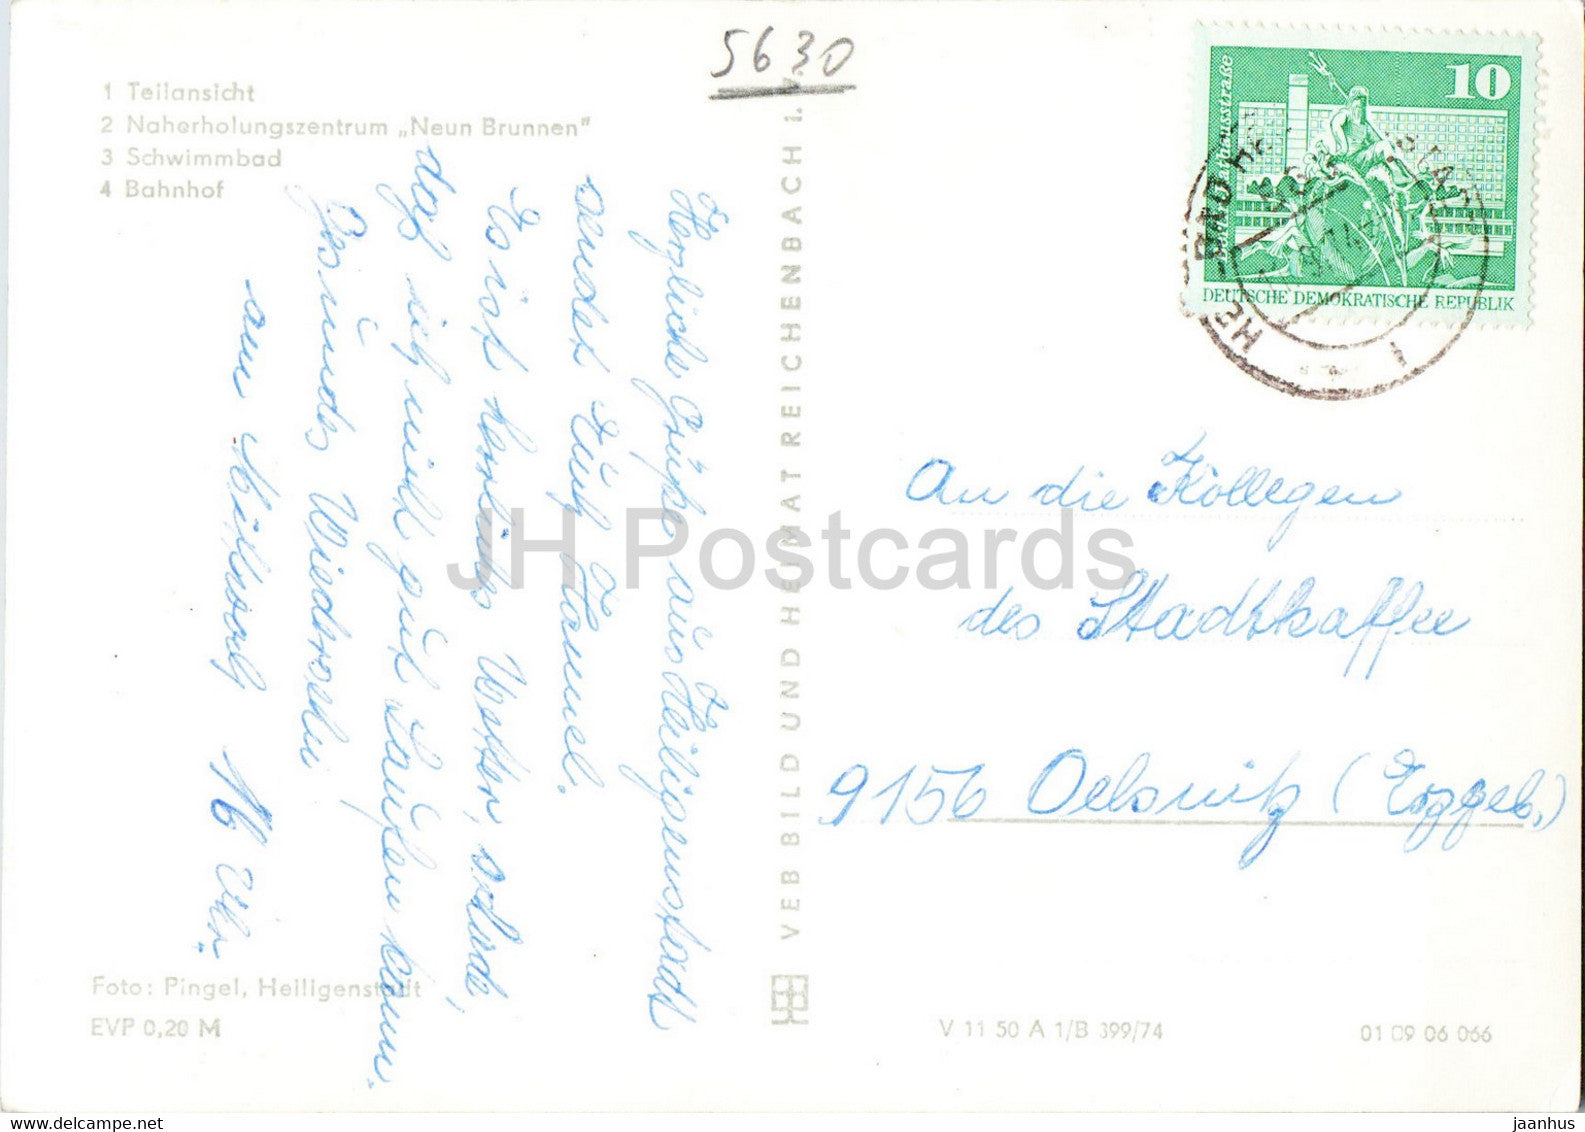 5630
1 Teilansicht
2 Naherholungszentrum „Neun Brunnen"
3 Schwimmbad
4 Bahnhof
Herzliche Grüße aus Heiligenstadt
sendet Euch Hannel.
Es ist herrliches Wetter,
daß ich mich gut laufen kann.
Gesundes Wiedersehn
am Mittwoch 16 Uhr.
Foto: Pingel, Heiligenstadt
EVP 0,20 M
VEB BILD UND HEIMAT REICHENBACH I. V.
10
DEUTSCHE DEMOKRATISCHE REPUBLIK
An die Kollegen
des Stadtkaffee
9156 Oelsnitz (Erzgeb.)
V 11 50 A 1/B 399/74
01 09 06 066
JH Postcards
jaanhus
www.delcampe.net